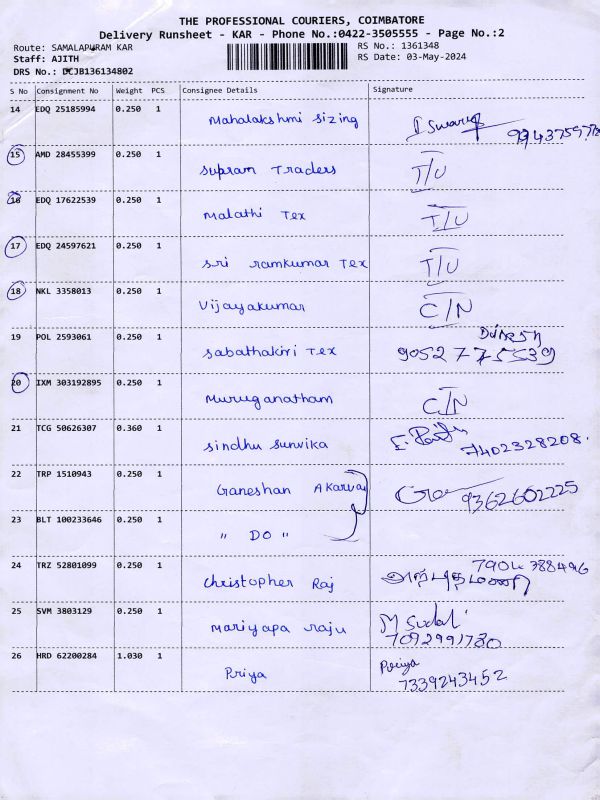 THE PROFESSIONAL COURIERS, COIMBATORE
Delivery Runsheet - KAR - Phone No.:0422-3505555 - Page No.:2
Route: SAMALAPURAM KAR
RS No.: 1361348
Staff: AJITH
RS Date: 03-May-2024
DRS No.: DCJB136134802
S No Consignment No Weight PCS Consignee Details Signature
14 EDQ 25185994 0.250 1 Mahalakshmi Sizing
15 AMD 28455399 0.250 1 Supram Traders T/U
16 EDQ 17622539 0.250 1 Malathi Tex T/U
17 EDQ 24597621 0.250 1 Sri ramkumar Tex T/U
18 NKL 3358013 0.250 1 Vijayakumar C/N
19 POL 2593061 0.250 1 Sabathakiri Tex 9052775539
20 IXM 303192895 0.250 1 Muruganatham C/N
21 TCG 50626307 0.360 1 Sindhu Sunvika 7402328208.
22 TRP 1510943 0.250 1 Ganeshan A Karvai 9362602225
23 BLT 100233646 0.250 1 " DO "
24 TRZ 52801099 0.250 1 Christopher Raj அற்புதமணி 7904388496
25 SVM 3803129 0.250 1 Mariyapa raju M Sudali 7092991730
26 HRD 62200284 1.030 1 Priya Priya 7339243452